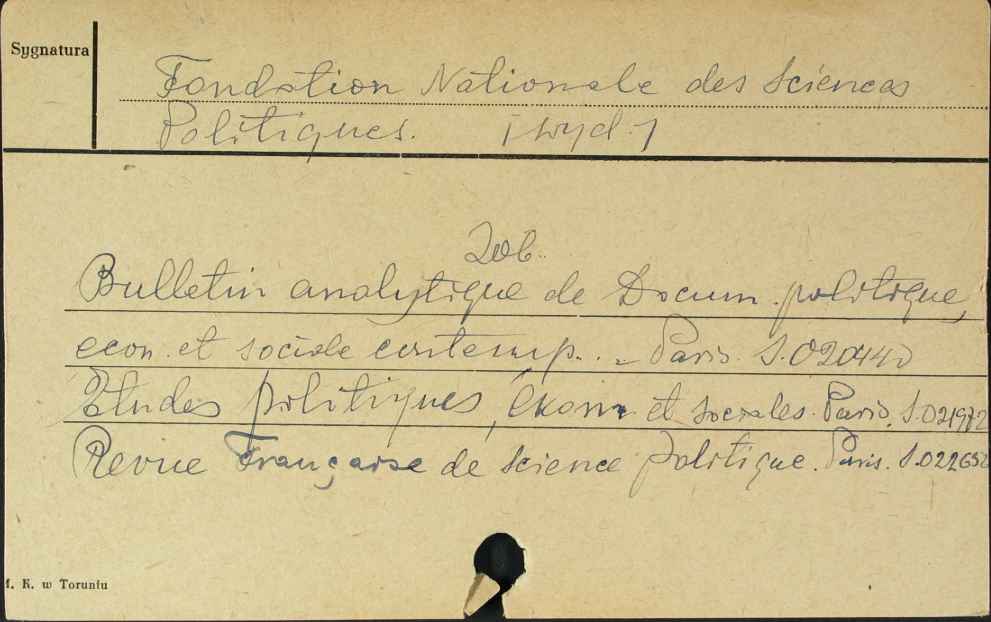 Sygnatura
Fondation Nationale des Sciences
Politiques. [wyd.]
Zob.
Bulletin analytique de Docum. politique,
econ. et sociale contemp. . - Paris. S.020440
Etudes politiques, ekon. et sociales. Paris. S.021972
Revue Française de science politique. Paris. S.022652
K. w Toruniu